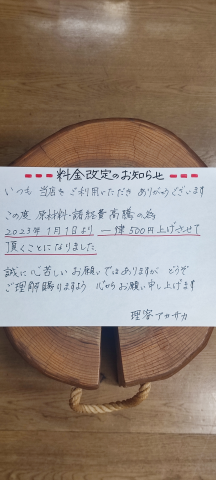 料金改定のお知らせ
いつも 当店をご利用いただき ありがとうございます
この度 原材料・諸経費高騰の為
2023年1月1日より 一律500円上げさせて
頂くことになりました。
誠に心苦しいお願いではありますが どうぞ
ご理解賜りますよう 心からお願い申し上げます
理容アカサカ